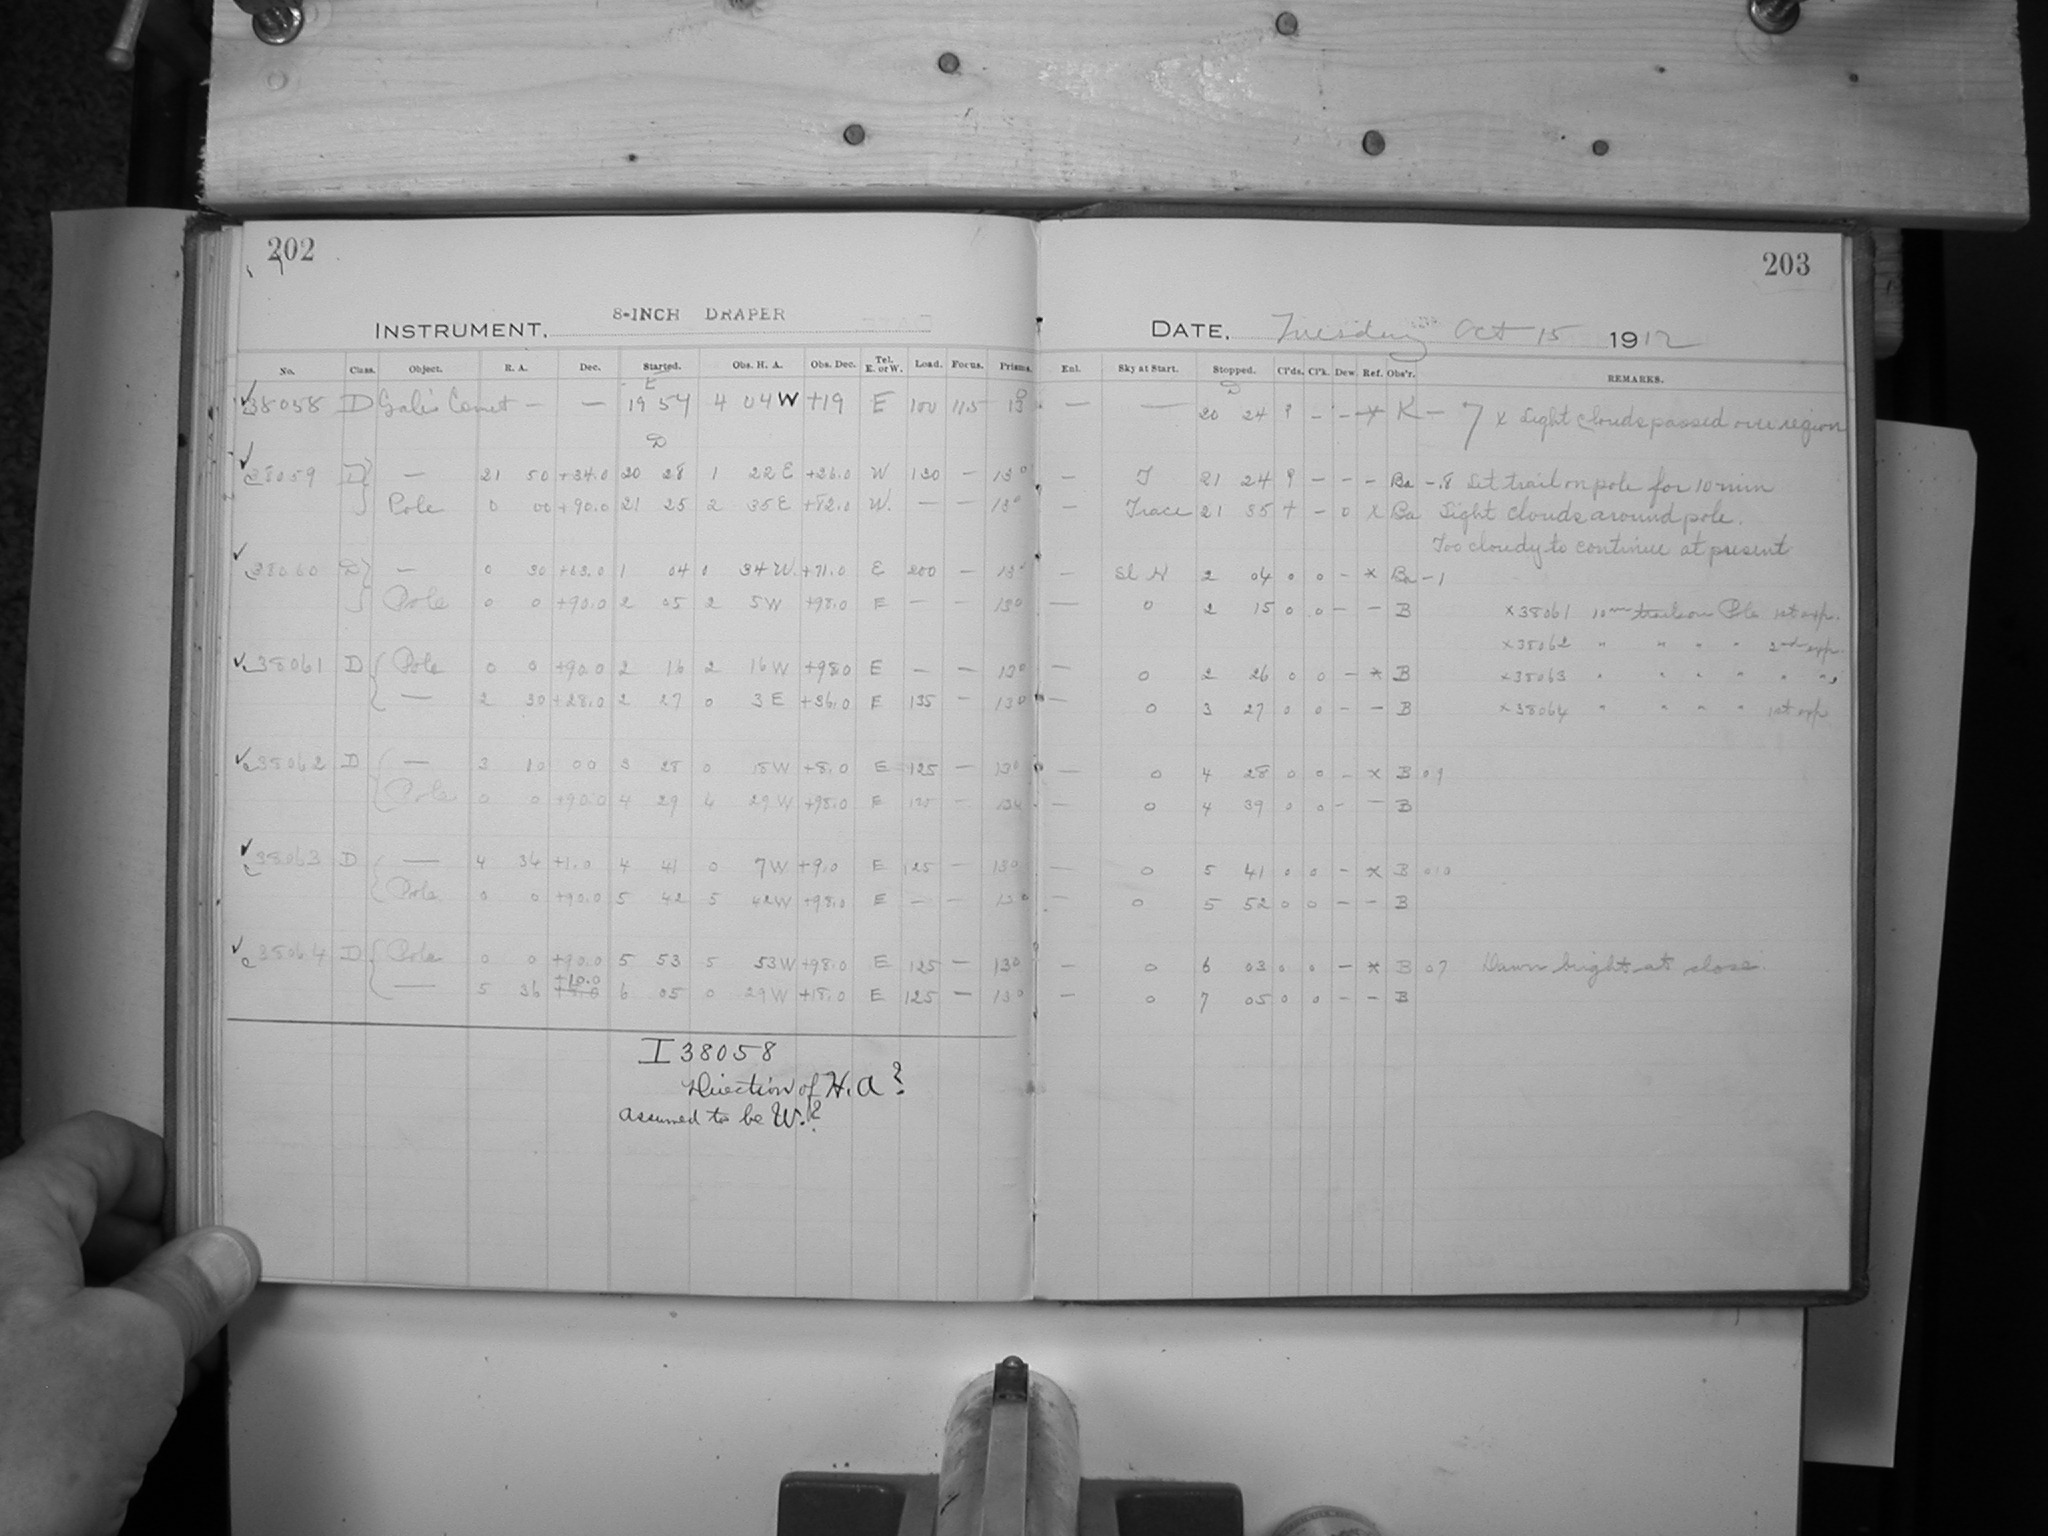 202
203
INSTRUMENT. 8-INCH DRAPER
DATE. Tuesday Oct 15 1912
No. Class. Object. R. A. Dec. Started. Obs. H. A. Obs. Dec. Tel. E. or W. Load. Focus. Prisms. Enl. Sky at Start. Stopped. Cl'ds. Cl'k. Dew. Ref. Obs'r. REMARKS.
38058 D Gale's Comet — — 19 54 4 04 W +19 E 100 11.5 13 — — 20 24 - - K - 7 x Light clouds passed over region
D
38059 D — 21 50 +34.0 20 28 1 22 E +26.0 W 130 — 13° — T 21 24 - - - Ba -.8 Let trail on pole for 10 min
Pole 0 00 +90.0 21 25 2 35 E +82.0 W. — — 13° — Trace 21 35 + - 0 x Ba Light clouds around pole.
Too cloudy to continue at present
38060 D — 0 30 +63.0 1 04 0 34 W. +71.0 E 200 — 13° — Sl N 2 04 0 0 - * Ba -1
Pole 0 0 +90.0 2 05 2 5 W +98.0 E — — 13° — 0 2 15 0 0 - - B x 38061 10m trails on Pole 1st exp.
x 38062 " " " " 2nd exp.
38061 D Pole 0 0 +90.0 2 16 2 16 W +98.0 E — — 13° — 0 2 26 0 0 - * B x 38063 " " " " " "
— 2 30 +28.0 2 27 0 3 E +36.0 E 135 — 13° — 0 3 27 0 0 - - B x 38064 " " " " 1st exp
38062 D — 3 10 00 3 28 0 18 W +8.0 E 125 — 13° — 0 4 28 0 0 - x B 09
Pole 0 0 +90.0 4 29 4 29 W +98.0 E — — 0 4 39 0 0 - - B
38063 D — 4 34 +1.0 4 41 0 7 W +9.0 E 125 — 13° — 0 5 41 0 0 - * B 010
Pole 0 0 +90.0 5 42 5 42 W +98.0 E — — 13° — 0 5 52 0 0 - - B
38064 D Pole 0 0 +90.0 5 53 5 53 W +98.0 E 125 — 13° — 0 6 03 0 0 - * B 07 Dawn bright at close.
— 5 36 +10.0 6 05 0 29 W +18.0 E 125 — 13° — 0 7 05 0 0 - - B
I 38058
Direction of H.A?
assumed to be W.?